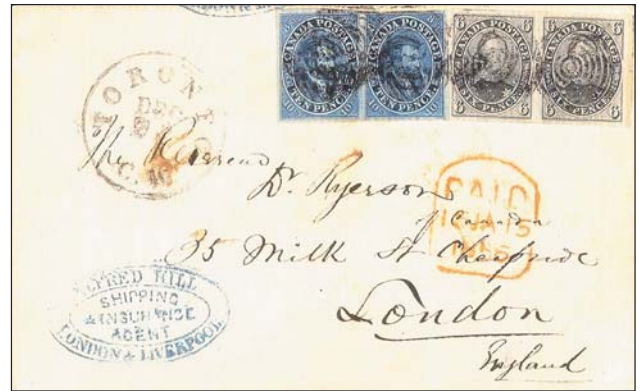 CANADA POSTAGE
TEN PENCE
CANADA POSTAGE
TEN PENCE
CANADA POSTAGE
SIX PENCE
CANADA POSTAGE
SIX PENCE
TORONTO
DEC
C.W
The Reverend
Dr. Ryerson
of Canada
35 Milk St Cheapside
London
England
PAID
JA
ALFRED HILL
SHIPPING
& INSURANCE
AGENT
LONDON & LIVERPOOL